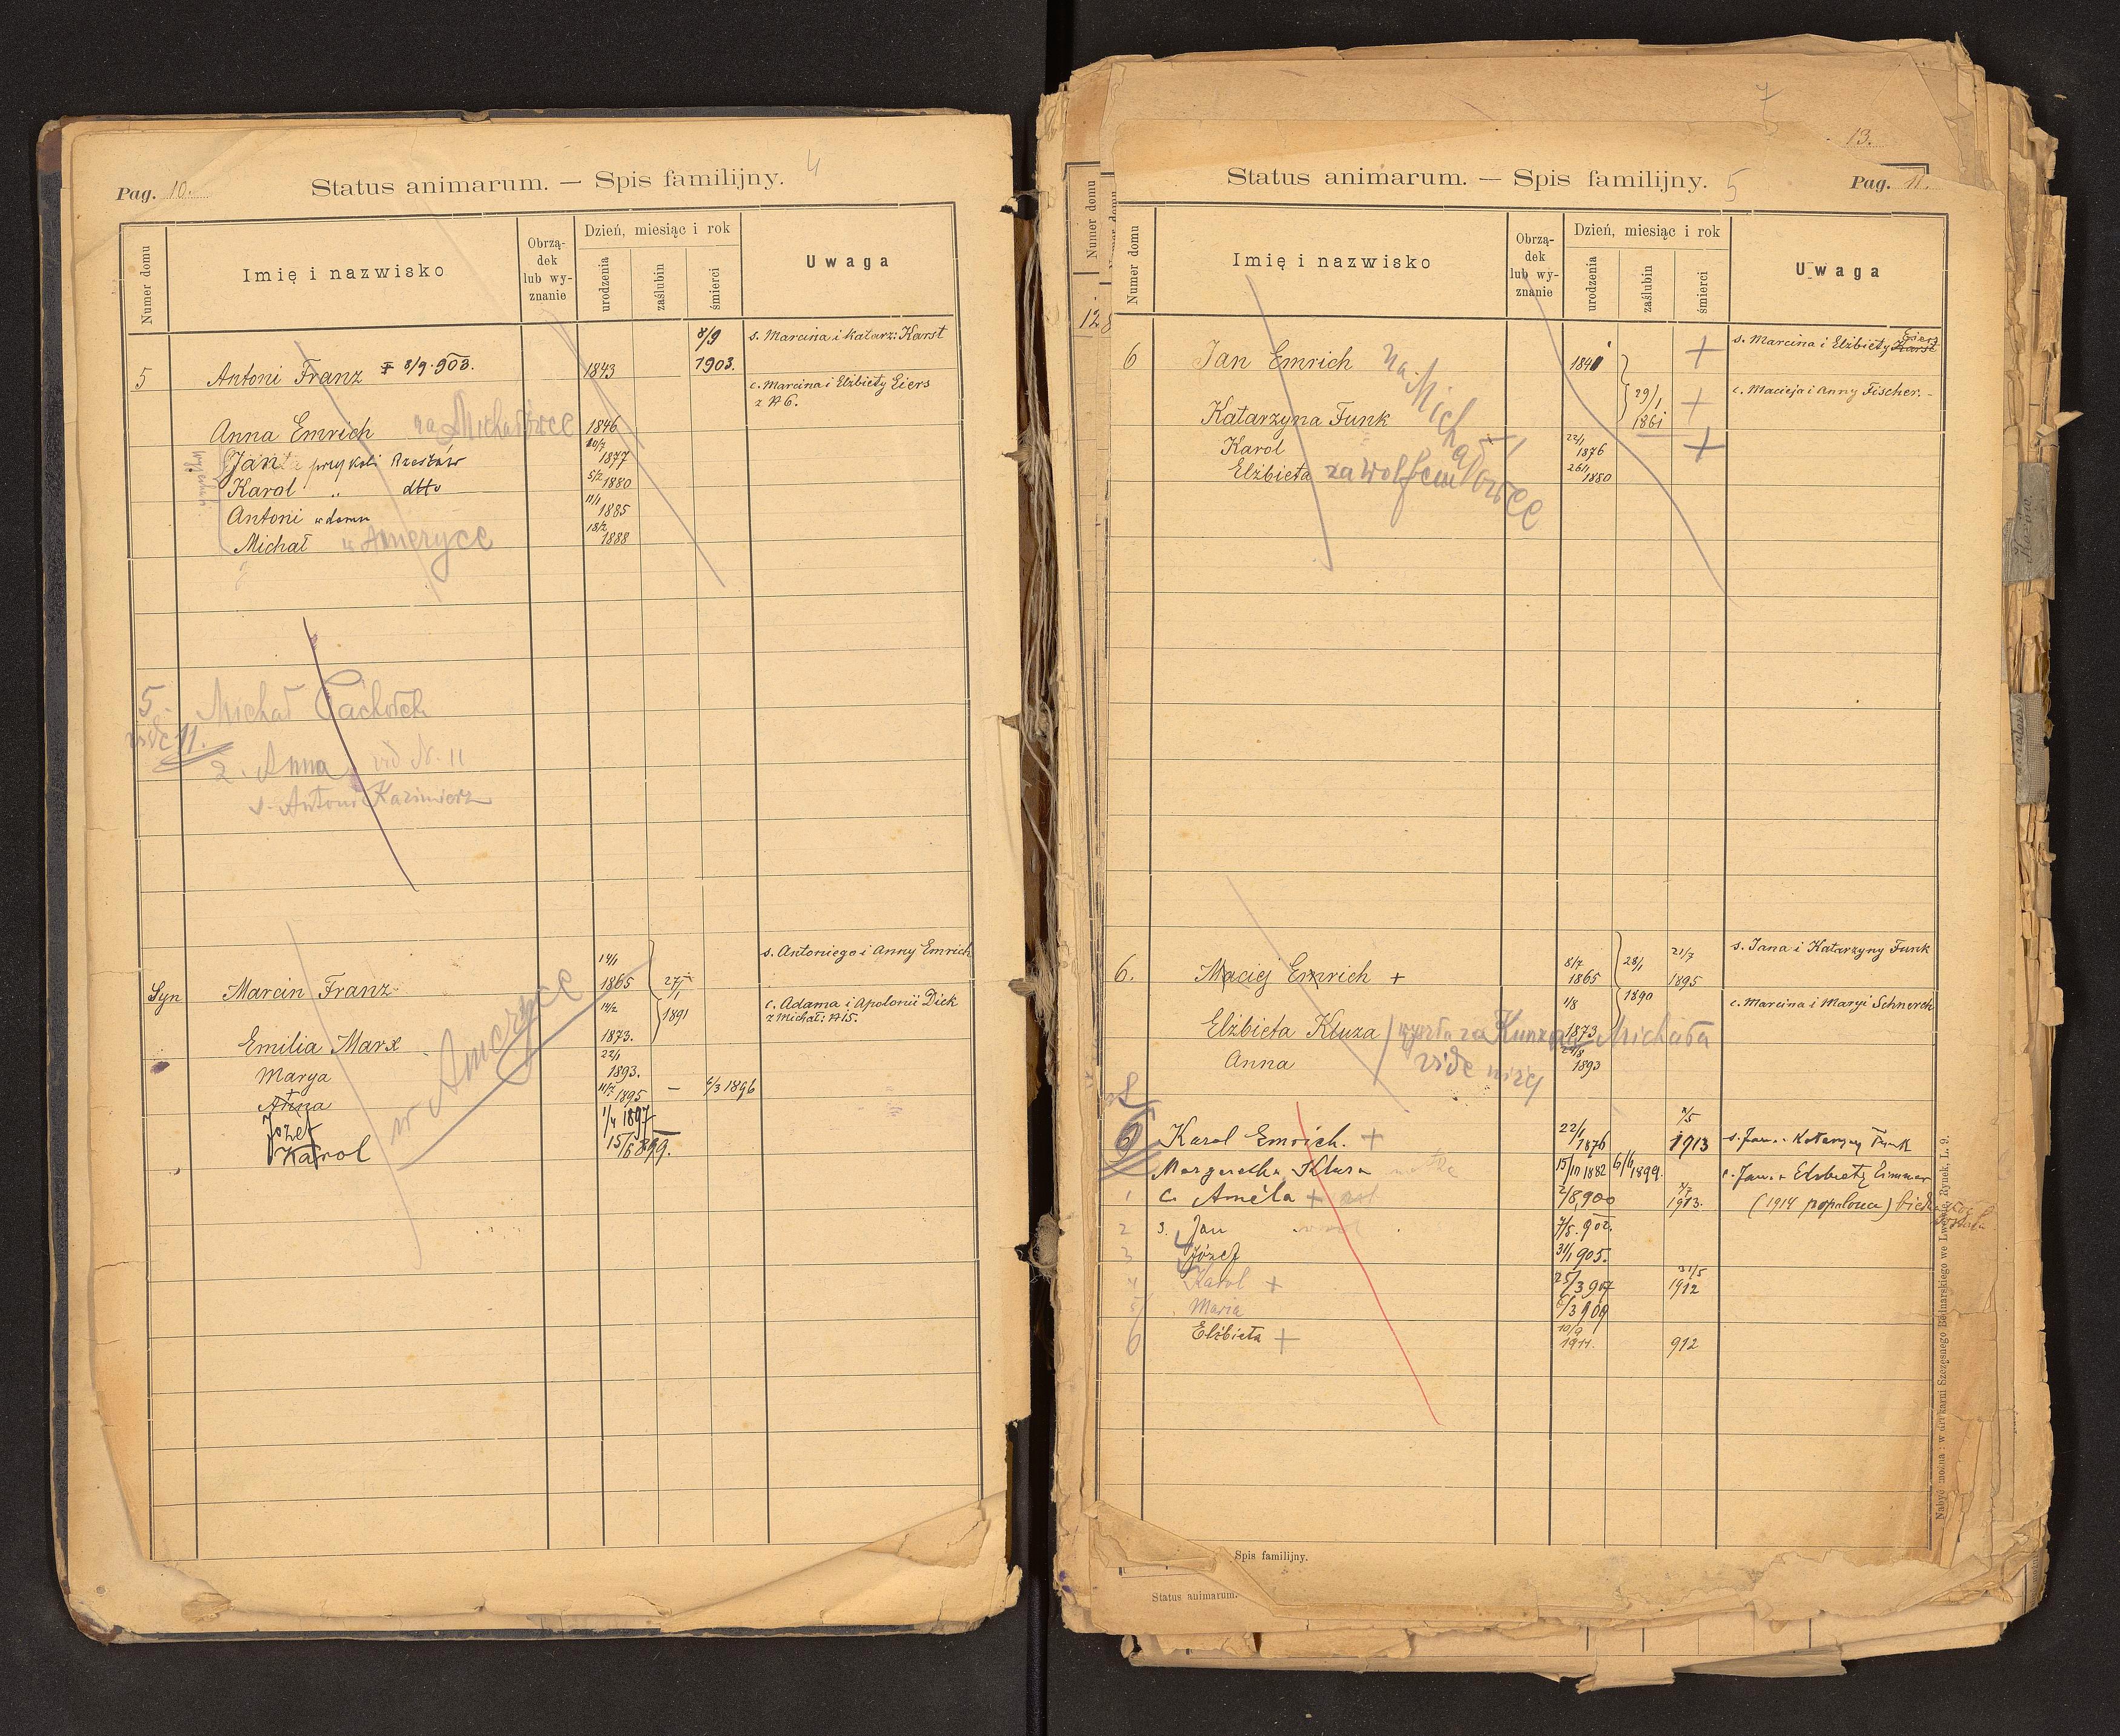 Pag. 10.
Status animarum. — Spis familijny.
4
Numer domu
Imię i nazwisko
Obrzą-
dek
lub wy-
znanie
Dzień, miesiąc i rok
urodzenia
zaślubin
śmierci
Uwaga
8/9 s. Marcina i Katarz: Karst
5 Antoni Franz 8/9.903. 1843 1903.
c. Marcina i Elżbiety Eiers
z N 6.
Anna Emrich na Michałówce 1846
Jan przy kolei Rzeszów 1877
Karol " dtto 5/2 1880
Antoni w domu 11/1 1885
Michał w Ameryce 18/2 1888
5. Michał
vide 11.
2. Anna vid N. 11
s. Antoni Kazimierz
14/1 s. Antoniego i Anny Emrich
Syn Marcin Franz 1865 27/1
14/2 1891 c. Adama i Apolonii Dick
z Michał: N 15.
Emilia Marx 1873.
w Ameryce
Marya 22/1 1893.
Anna 1895 — 6/3 1896
Józef 1/4 1897
Karol 15/6 899.
7
13.
Status animarum. — Spis familijny.
5
Pag. 11.
Numer domu
12
Numer domu
Imię i nazwisko
Obrzą-
dek
lub wy-
znanie
Dzień, miesiąc i rok
urodzenia
zaślubin
śmierci
Uwaga
s. Marcina i Elżbiety Karst Eiers
6 Jan Emrich 1841 +
na Michałówce
29/1 + c. Macieja i Anny Fischer. -
Katarzyna Funk 1861
Karol 22/1 1876 +
Elżbieta za Wolfem 26/1 1880
s. Jana i Katarzyny Funk
6. Maciej Emrich + 8/7 1865 28/1 21/7 1895
1/8 1890 c. Marcina i Maryi Schnerch
Elżbieta Kluza wyszła za Kunza Michała 1873
Anna vide niżej 1893
6 Karol Emrich. + 22/1 1876 1913 s. Jana i Katarzyny Funk
Margaretha Kluza 15/10 1882 6/6 1899. c. Jana i Elżbiety Zimmer
1 c. Amela + 2/8,900 1913. (1914
2 s. Jan 7/5. 902.
3 Józef 31/1 905.
4 Karol + 25/3 907 31/5 1912
5 Maria 6/3 909
6 Elżbieta + 10/9 1911. 912
Nabyć można: w drukarni Szczęsnego Bednarskiego we Lwowie, Rynek, L. 9.
Spis familijny.
Status animarum.